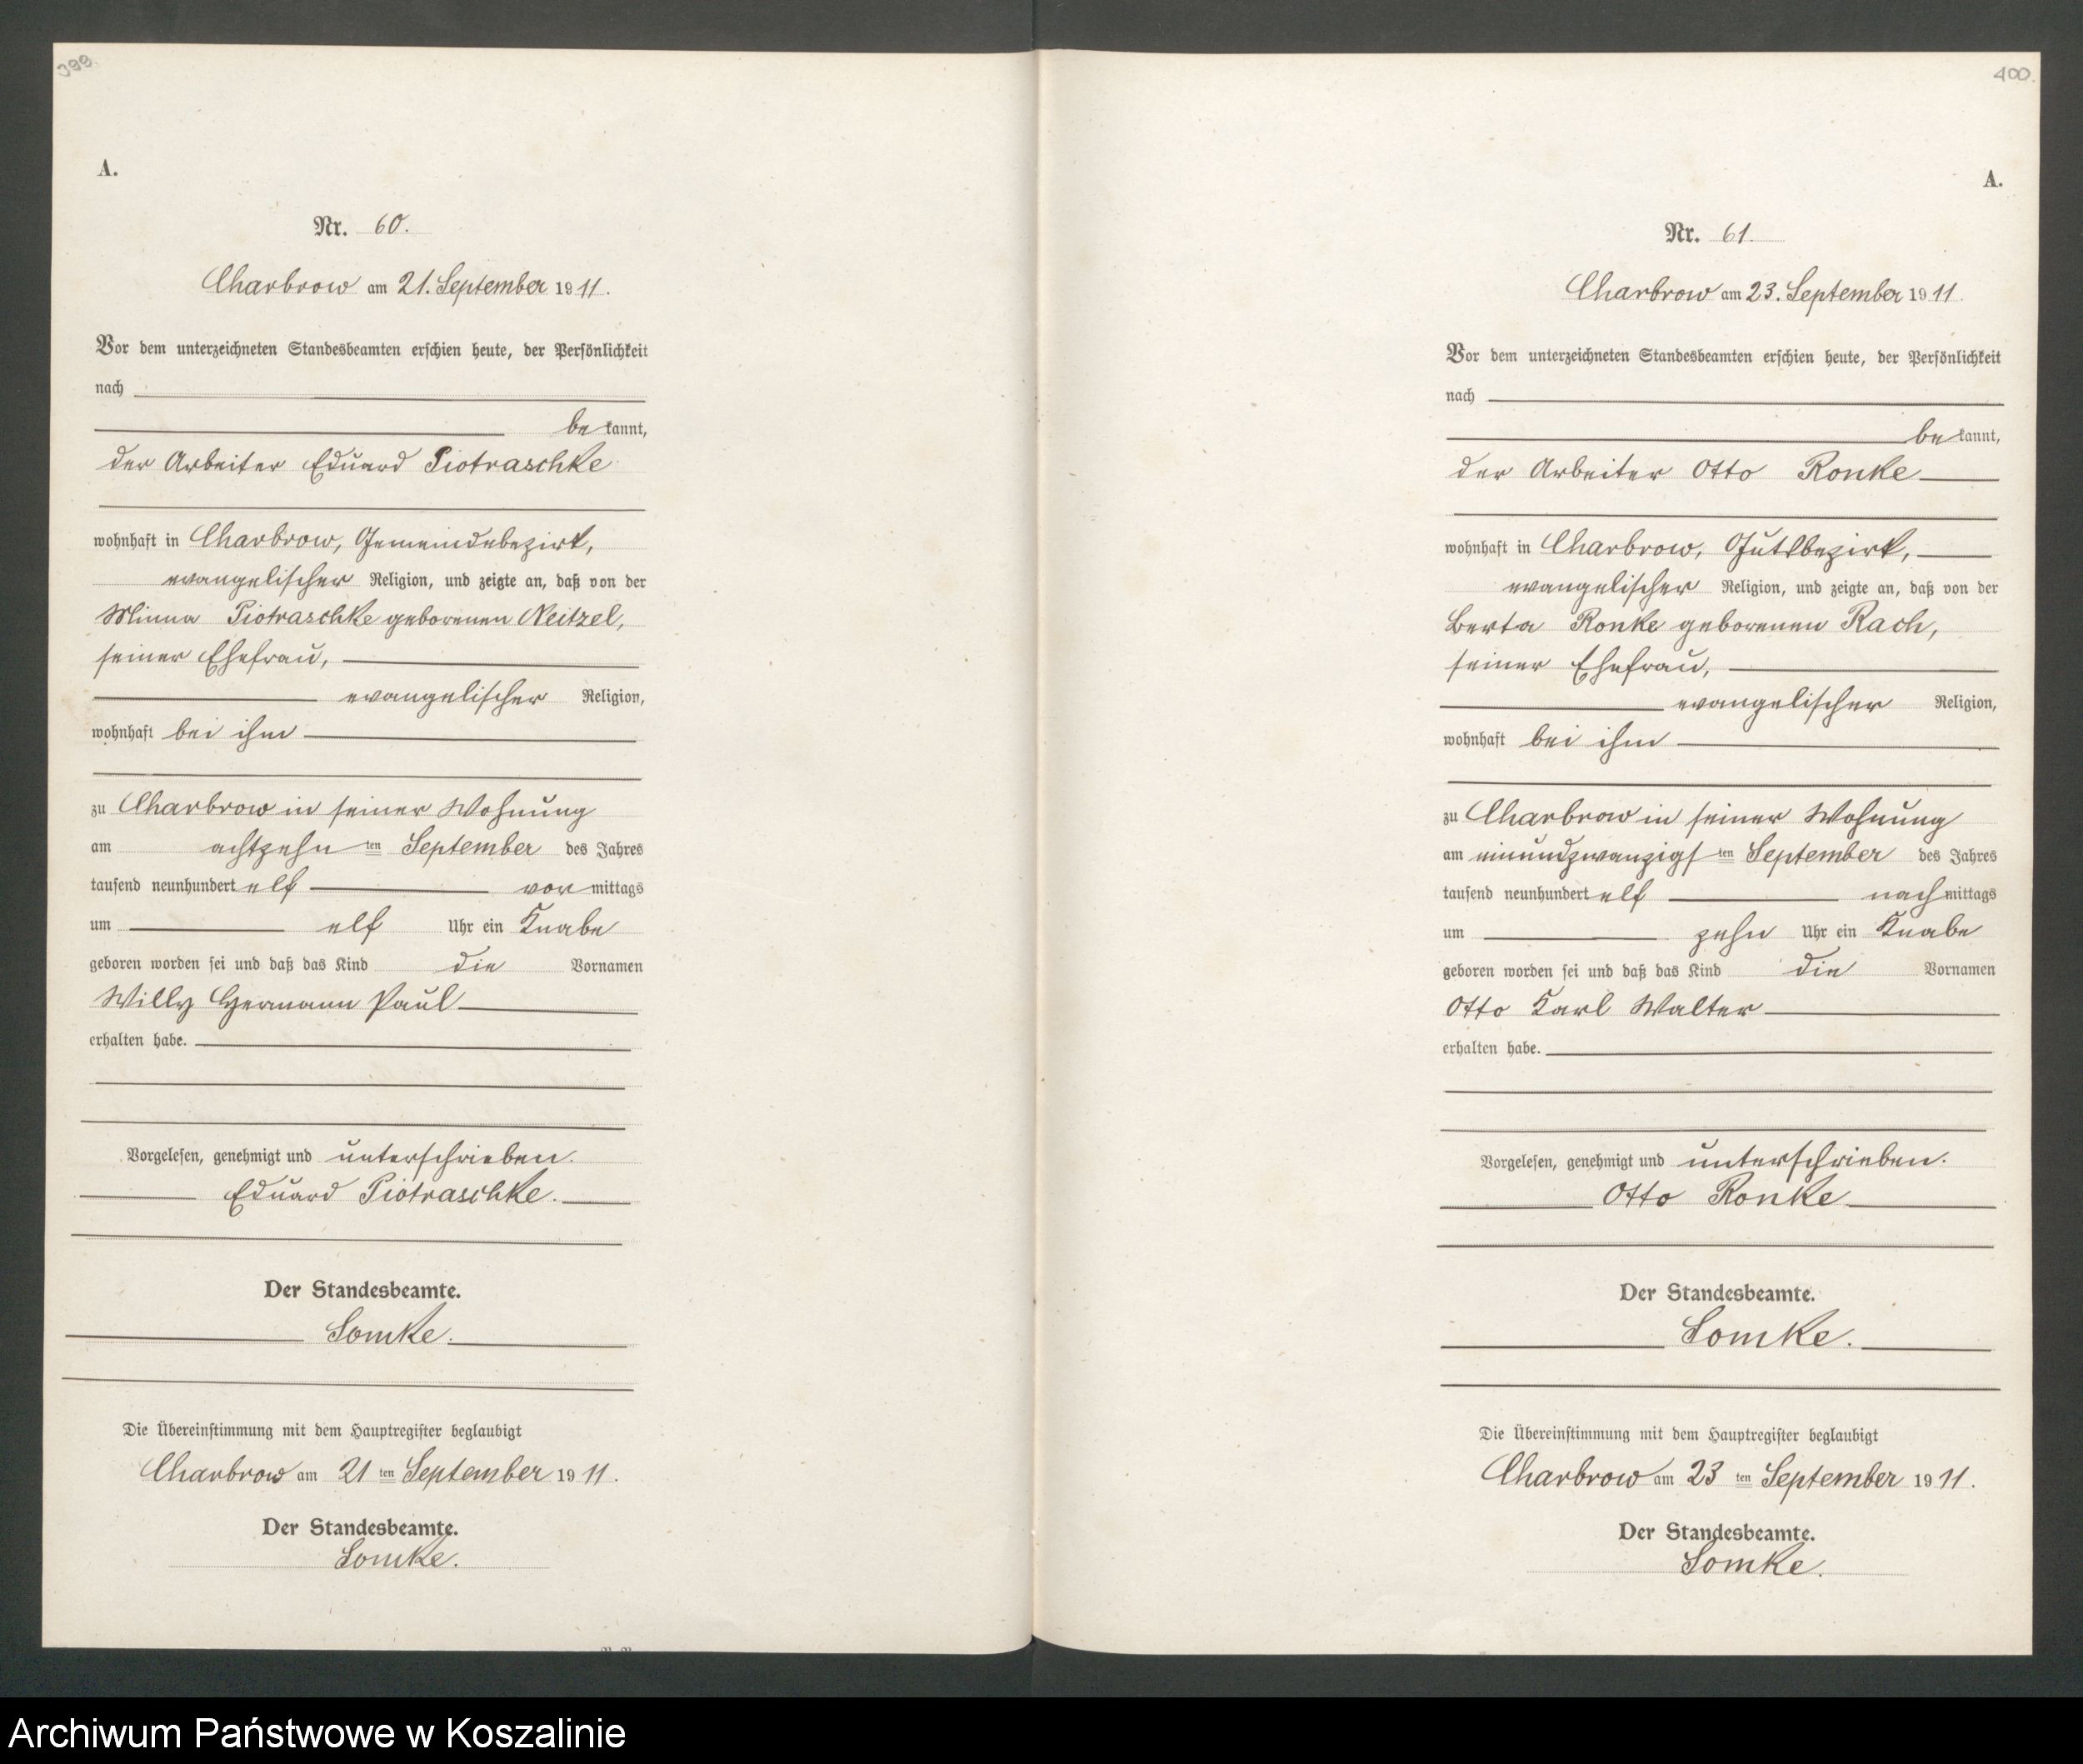 399.
A.
Nr. 60.
Charbrow am 21. September 1911.
Vor dem unterzeichneten Standesbeamten erschien heute, der Persönlichkeit
nach
bekannt,
der Arbeiter Eduard Piotraschke
wohnhaft in Charbrow, Gemeindebezirk,
evangelischer Religion, und zeigte an, daß von der
Minna Piotraschke geborenen Neitzel,
seiner Ehefrau,
evangelischer Religion,
wohnhaft bei ihm
zu Charbrow in seiner Wohnung
am achtzehn ten September des Jahres
tausend neunhundert elf vormittags
um elf Uhr ein Knabe
geboren worden sei und daß das Kind die Vornamen
Willy Hermann Paul
erhalten habe.
Vorgelesen, genehmigt und unterschrieben.
Eduard Piotraschke.
Der Standesbeamte.
Lomke.
Die Übereinstimmung mit dem Hauptregister beglaubigt
Charbrow am 21 ten September 1911.
Der Standesbeamte.
Lomke.
400.
A.
Nr. 61.
Charbrow am 23. September 1911.
Vor dem unterzeichneten Standesbeamten erschien heute, der Persönlichkeit
nach
bekannt,
der Arbeiter Otto Ronke
wohnhaft in Charbrow, Gutsbezirk,
evangelischer Religion, und zeigte an, daß von der
Berta Ronke geborenen Rach,
seiner Ehefrau,
evangelischer Religion,
wohnhaft bei ihm
zu Charbrow in seiner Wohnung
am einundzwanzigs ten September des Jahres
tausend neunhundert elf nachmittags
um zehn Uhr ein Knabe
geboren worden sei und daß das Kind die Vornamen
Otto Karl Walter
erhalten habe.
Vorgelesen, genehmigt und unterschrieben.
Otto Ronke
Der Standesbeamte.
Lomke.
Die Übereinstimmung mit dem Hauptregister beglaubigt
Charbrow am 23 ten September 1911.
Der Standesbeamte.
Lomke.
Archiwum Państwowe w Koszalinie